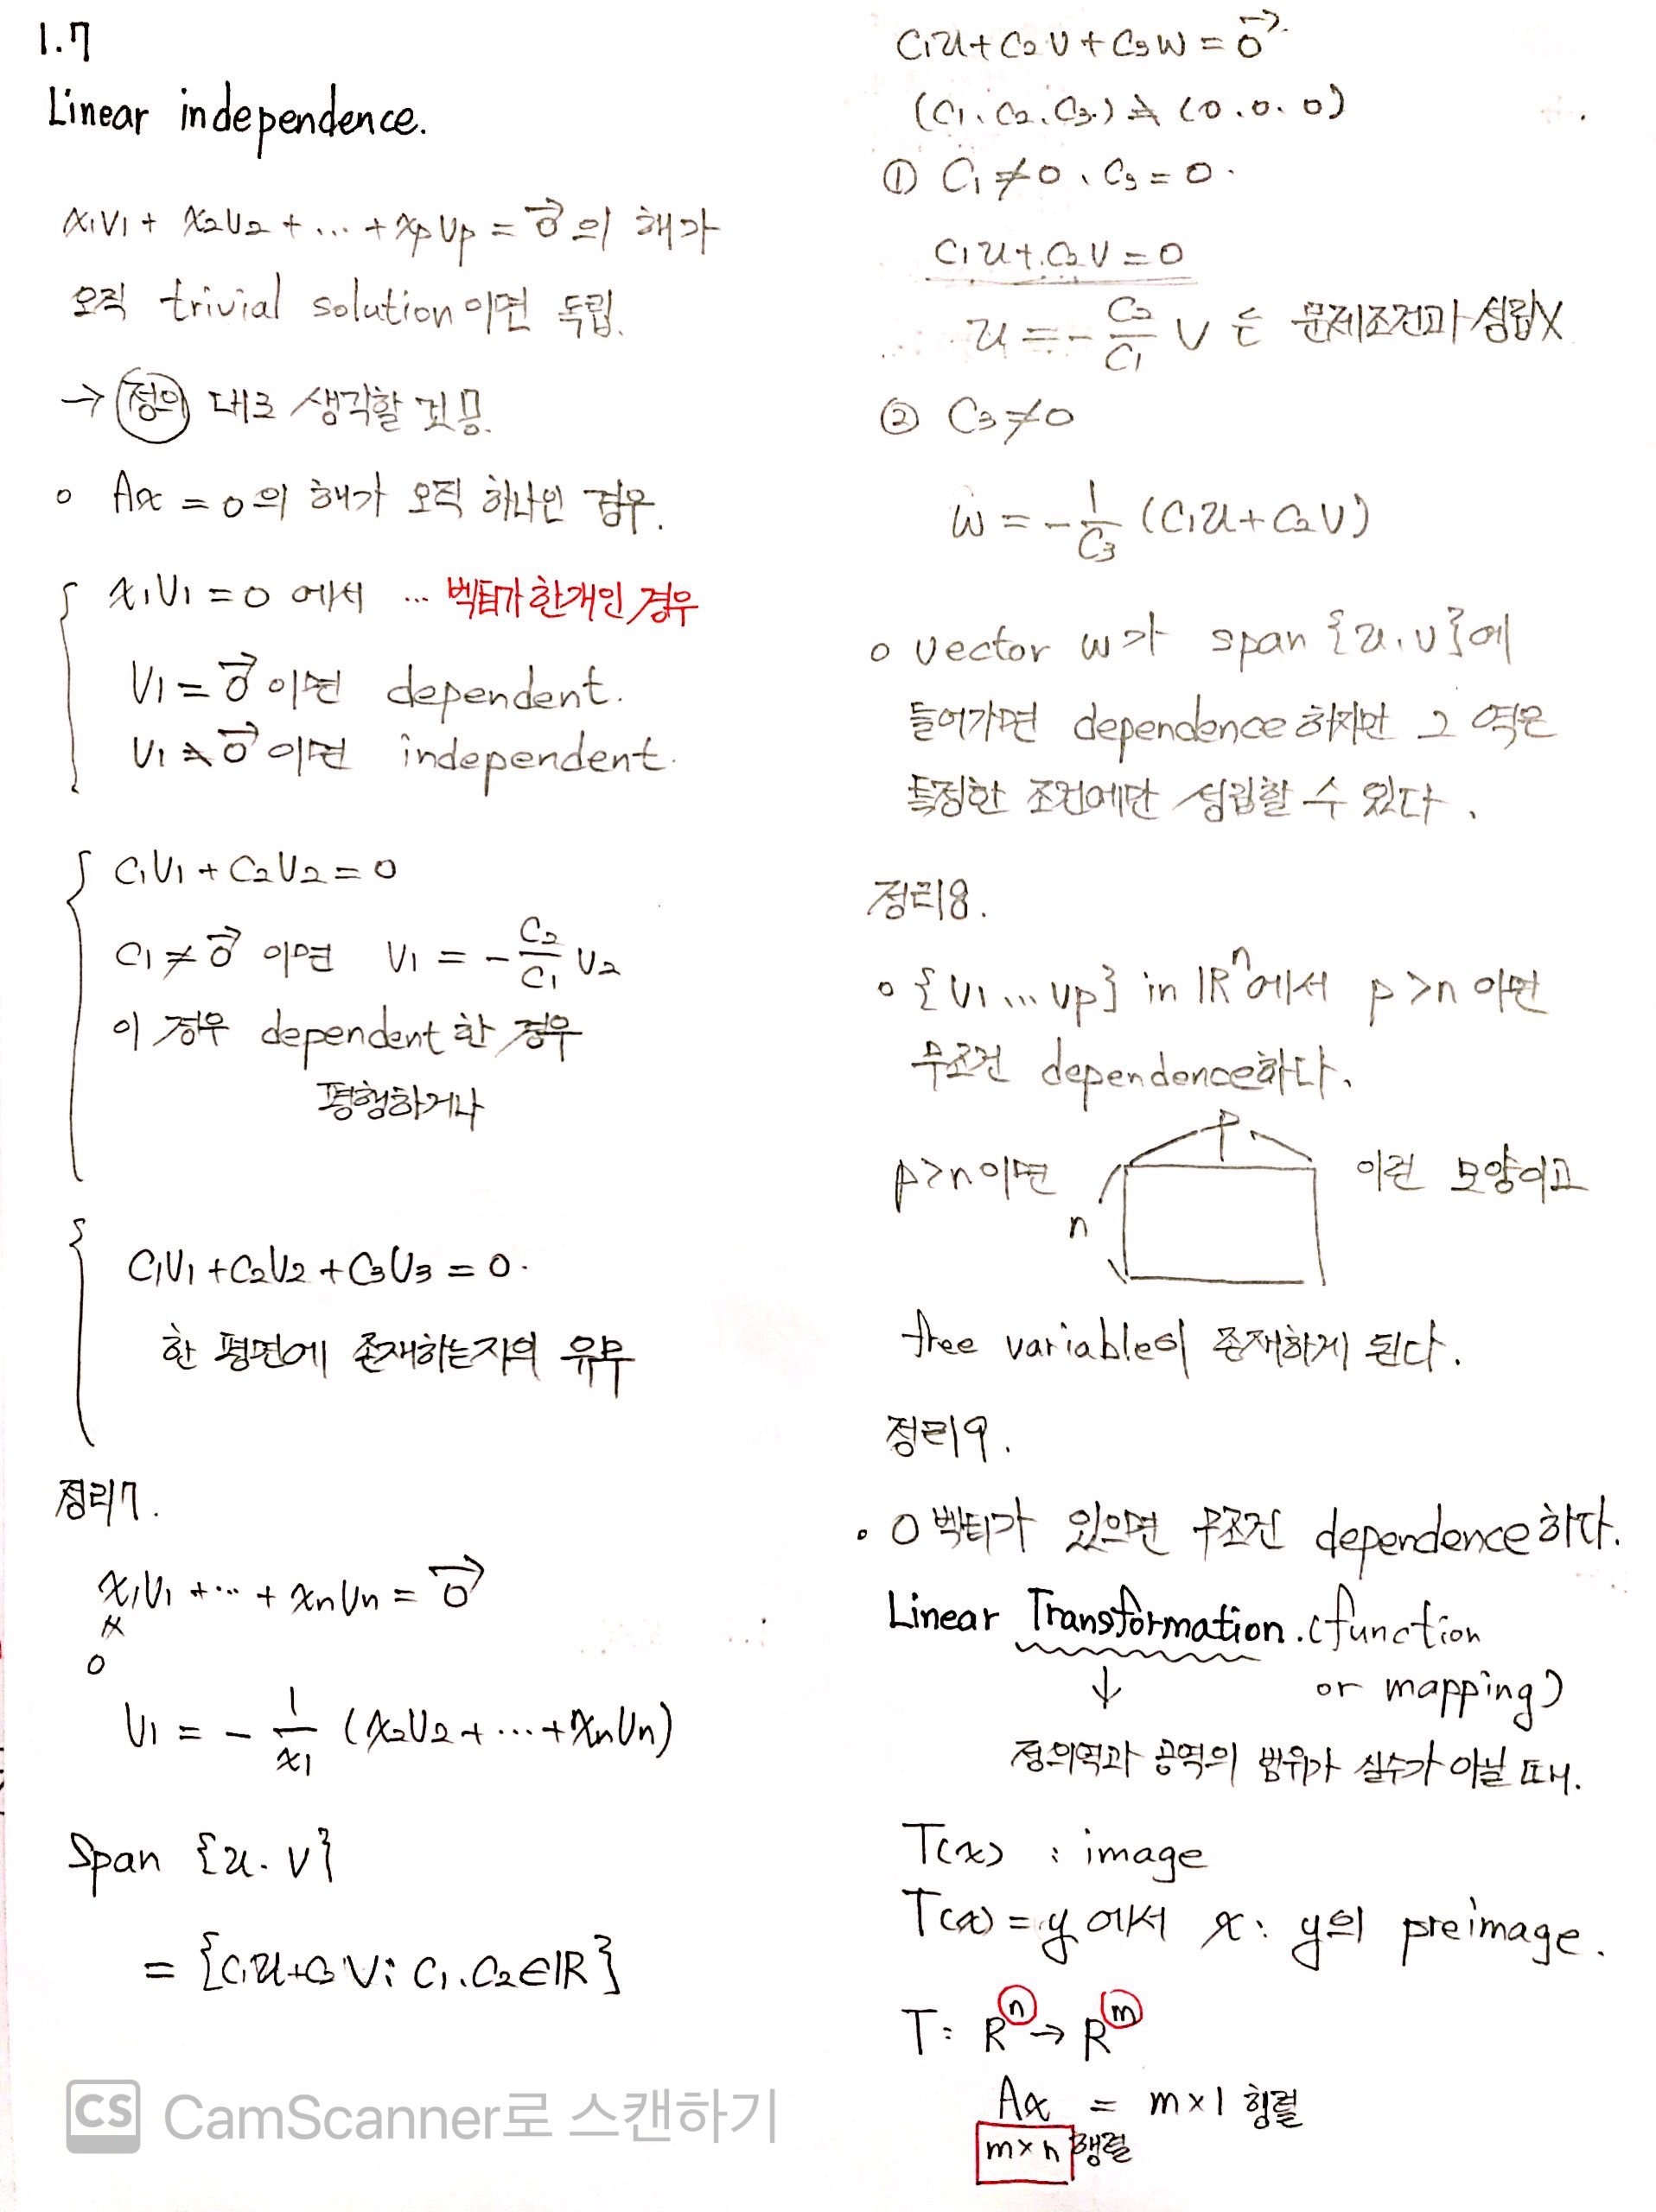 1.7
Linear independence.
x₁v₁ + x₂v₂ + ... + xₚvₚ = 0⃗ 의 해가
오직 trivial solution 이면 독립.
→ 정의 대로 생각할 것!!
○ Ax = 0의 해가 오직 하나인 경우.
x₁v₁ = 0 에서 ... 벡터가 한개인 경우
v₁ = 0⃗ 이면 dependent.
v₁ ≠ 0⃗ 이면 independent.
c₁v₁ + c₂v₂ = 0
c₁ ≠ 0⃗ 이면 v₁ = - c₂/c₁ v₂
이 경우 dependent 한 경우
평행하거나
c₁v₁ + c₂v₂ + c₃v₃ = 0.
한 평면에 존재하는지의 유무
정리7.
x₁v₁ + ... + xₙvₙ = 0⃗
≠
0
v₁ = - 1/x₁ (x₂v₂ + ... + xₙvₙ)
Span {u. v}
= {c₁u+c₂v : c₁. c₂∈ℝ}
CS CamScanner로 스캔하기
c₁u + c₂v + c₃w = 0⃗
(c₁. c₂. c₃.) ≠ (0. 0. 0)
① c₁ ≠ 0 、 c₃ = 0.
c₁u + c₂v = 0
u = - c₂/c₁ v 는 문제조건과 성립X
② c₃ ≠ 0
w = - 1/c₃ (c₁u + c₂v)
○ vector w가 span {u. v}에
들어가면 dependence 하지만 그 역은
특정한 조건에만 성립할 수 있다.
정리8.
○ {v₁ ... vₚ} in ℝⁿ에서 p > n 이면
무조건 dependence하다.
p
p>n이면 이런 모양이고
n
free variable이 존재하게 된다.
정리9.
○ 0벡터가 있으면 무조건 dependence하다.
Linear Transformation. (function
or mapping)
↓
정의역과 공역의 범위가 실수가 아닐 때.
T(x) : image
T(x) = y 에서 x : y의 preimage.
T : Rⁿ → Rᵐ
Ax = m×1 행렬
m×n 행렬